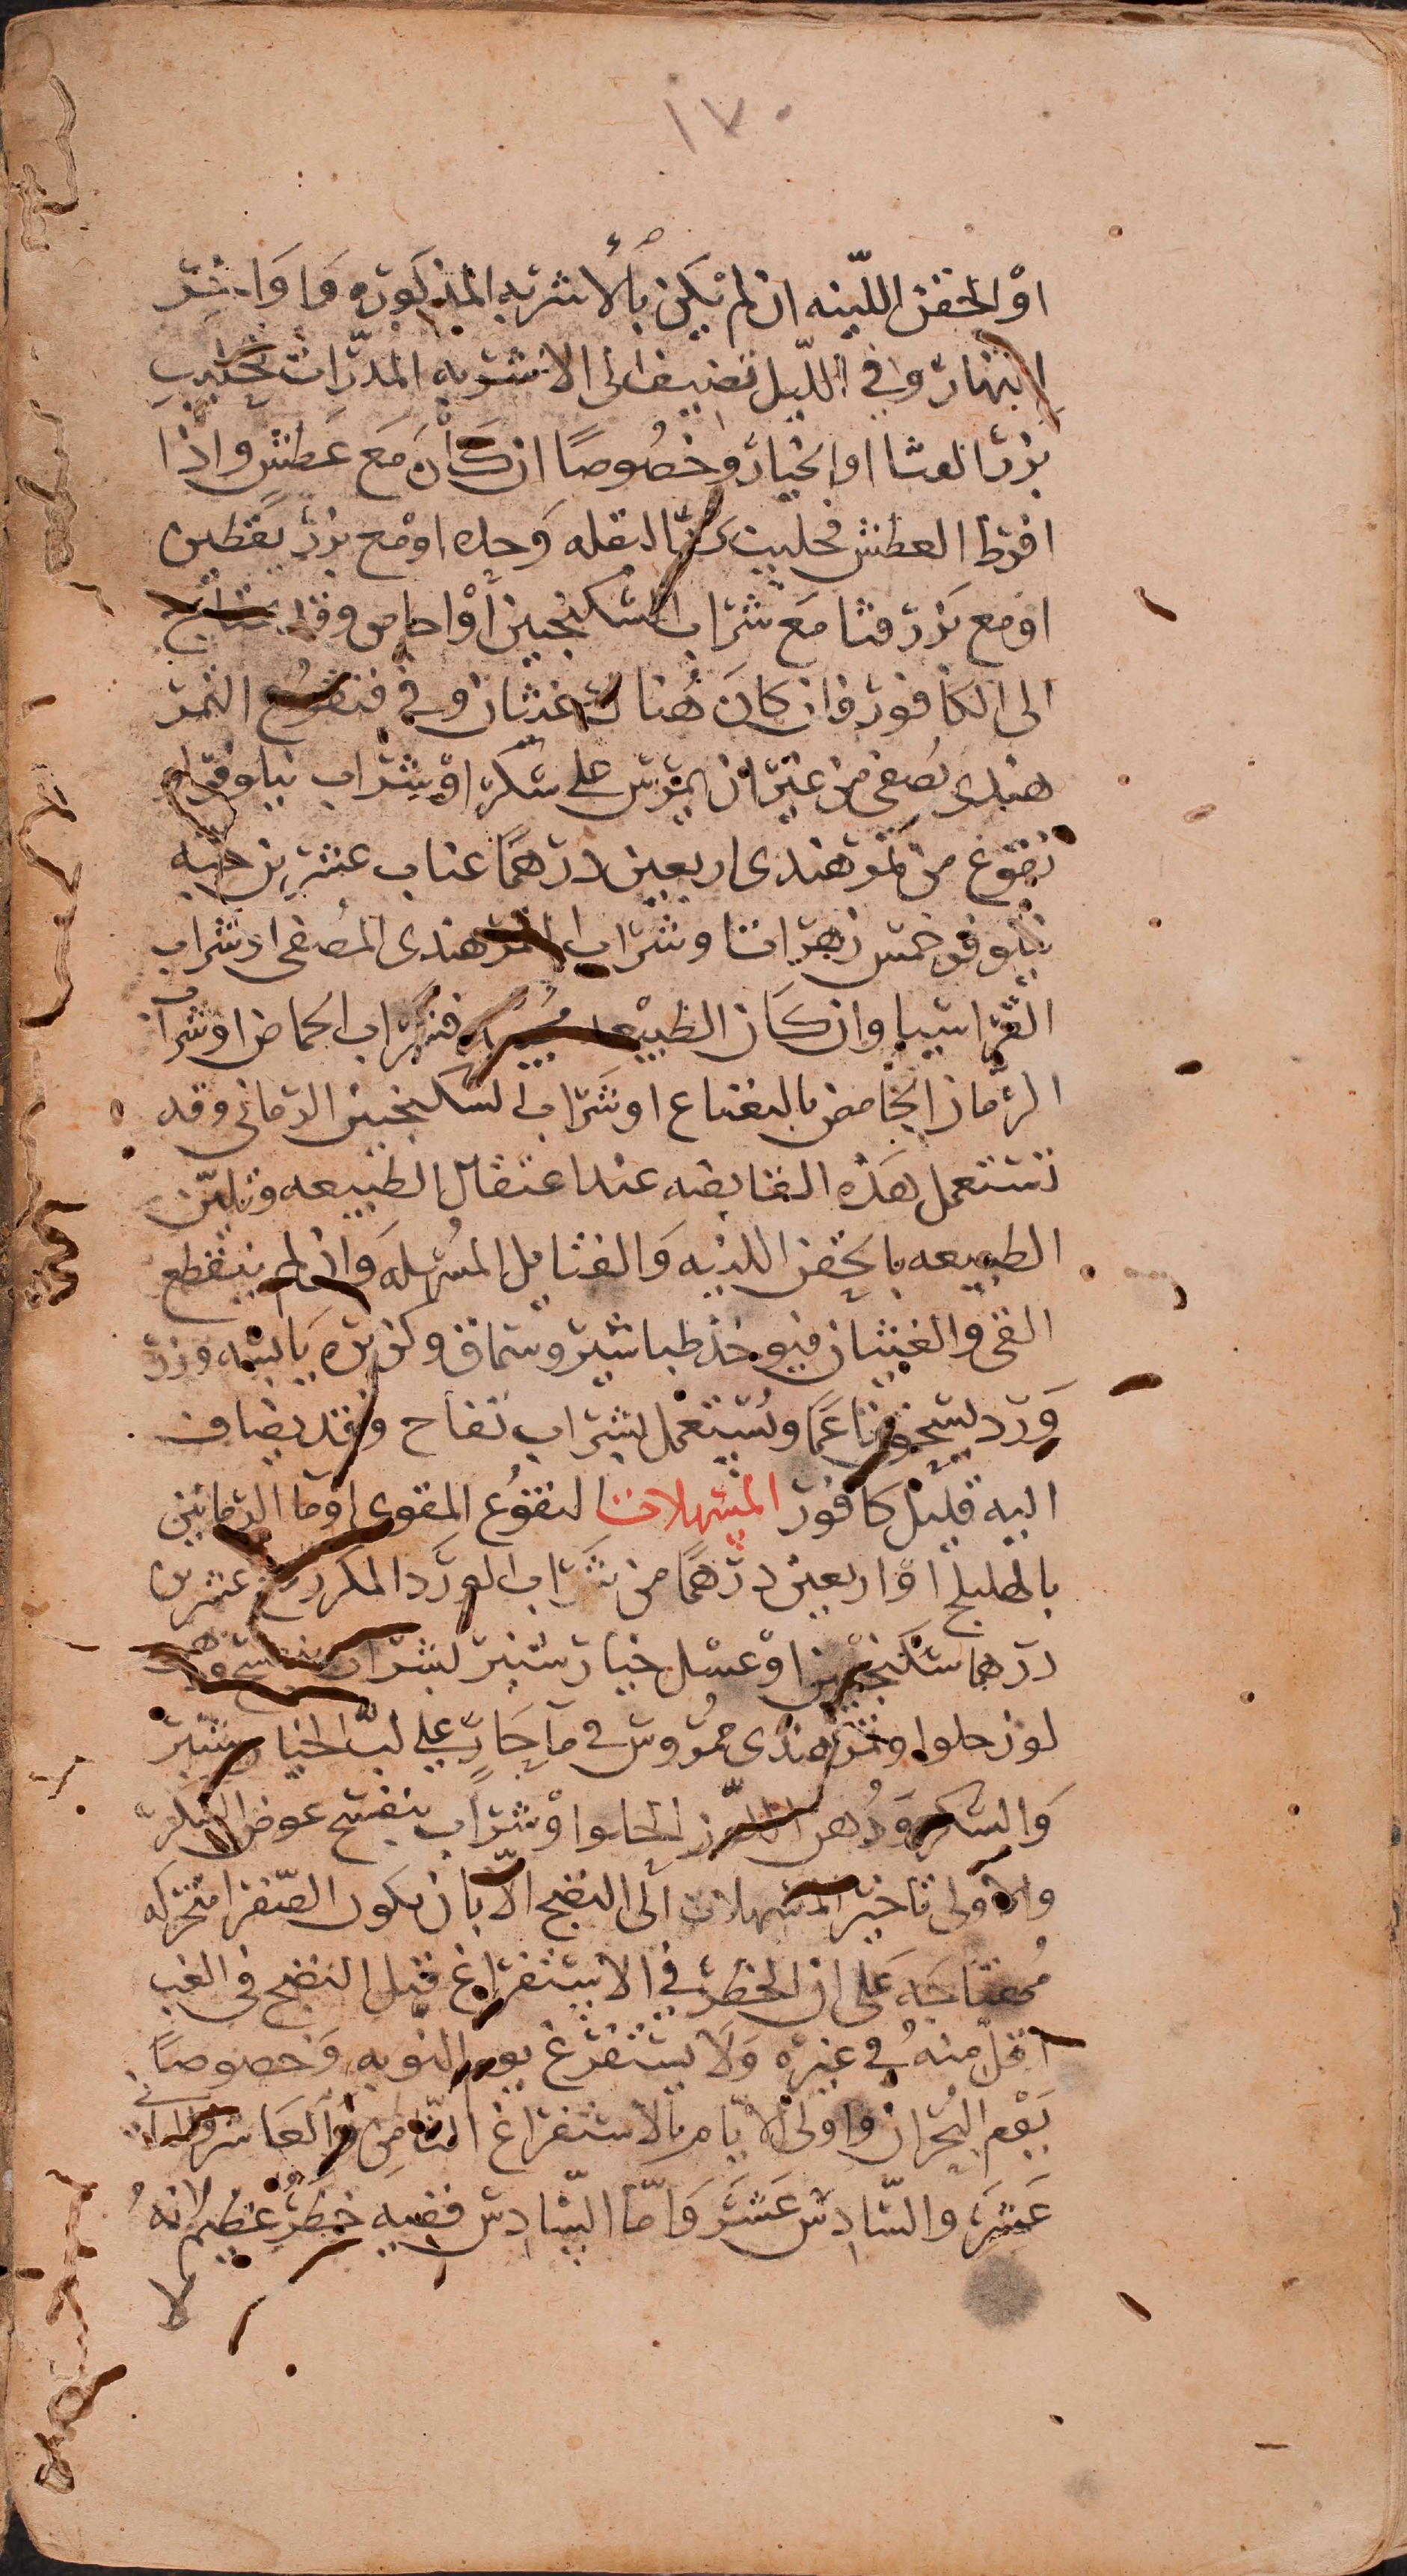 ١٧٠
او الحقن اللينه ان لم يكن بالاشربه المذكوره واواخر
النهار وفي الليل تضيف الى الاشربه المدرات كحليب
بزر القثا او الخيار وخصوصًا ان كان مَع عَطش واذا
افرط العطش فحليب بزر البقله وحده او مع بزر يقطين
او مع بَزر قثا مَع شراب السكنجبين أوْ احاص وقد يحتاج
الى الكافور فان كانَ هُناك غثيان وقي فنقوع التمر
هندى يُصفى من غير ان يمرس على سكر اوْ شراب نيلوفر او
نقوع من تمر هندى اربعين درهمًا عناب عشرين حبه
نيلوفر خمس زهرات وشراب التمر هندى المُصفى او شراب
القراسيا وان كان الطبيعه فشراب الحماض او شراب
الرمان الحامض بالنعناع او شراب السكنجبين الرمانى وقد
تستعمل هَذه القابضه عند اعتقال الطبيعه وتليّن
الطبيعه بالحقن اللينه وَالفتايل المُسهله وَان لم ينقطع
القى والغثيان فيوخذ طباشير وسماق وكزبره يَابسَه وزر
وَرد يسحق ناعمًا ويُستعمل بشراب تفاح وقد يضاف
اليه قليل كافور المسهلات النقوُع المقوى اوْ ما الرمانين
بالهليلج اوْ اربعين درْهمًا من شَراب الورَد المكرر مع عشرين
درهما سكنجبين اوْ عسل خيار شنبر بشراب بنفسج ودهن
لوز حلو او تمر هندى ممرُوس في مآ حَار على لبّ الخيار شنبر
وَالسكر وَدُهن اللوز الحلو اوْ شراب بنفسج عوض السكر
والاولى تاخير المسهلات الى النضج الاّ بان يكون الصّفرا متحركه
مُهتاجَه عَلى ان الخطر في الاستفراغ قبل النضج في الغب
اقل منهُ في غيره وَلَا يستفرغ يوم النوبه وَخصوصاً
يَوْم البُحران واولى الايام بالاستفراغ الثامِن وَالعَاشر والثانى
عَشرَ والسّادس عَشَر وَامّا السّادس ففيه خطرُ عظيم لانهُ
لا